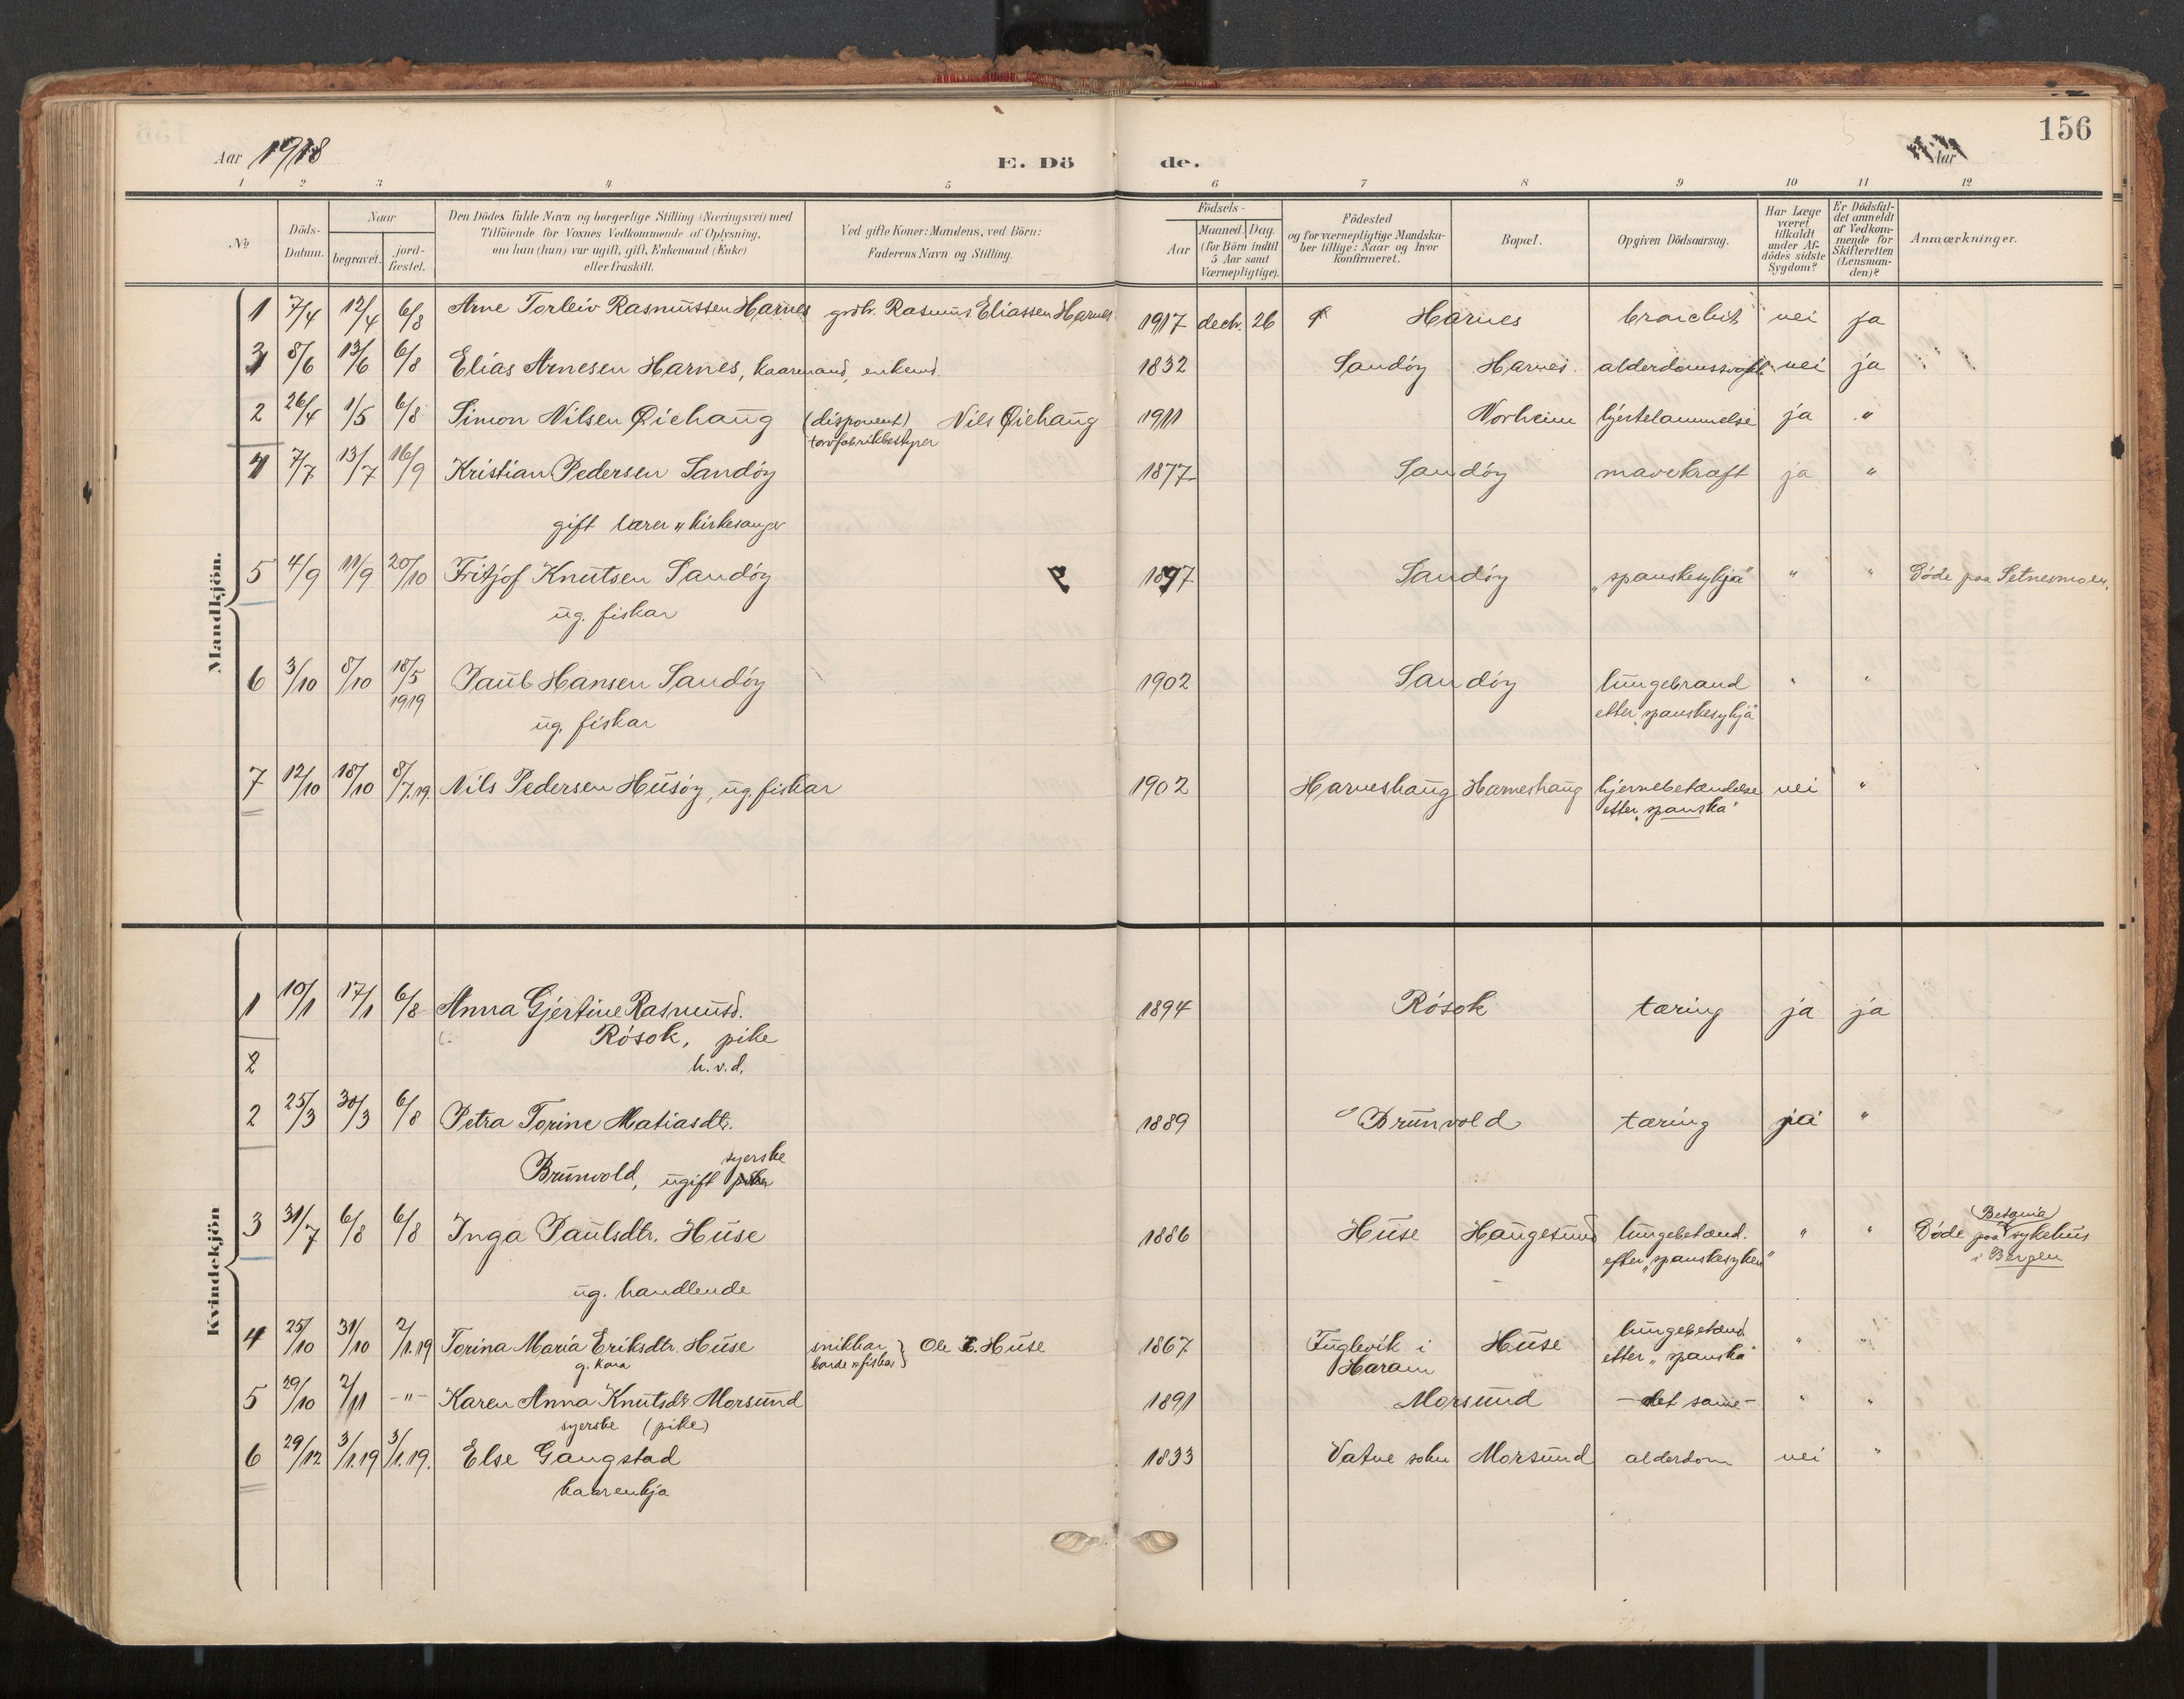 156
Aar 1918
E. Dö de.
Aar
1 2 3 4 5 6 7 8 9 10 11 12
№
Döds-Datum.
Naar
begravet.
jord-fæstet.
Den Dödes fulde Navn og borgerlige Stilling (Næringsvei) med
Tilföiende for Voxnes Vedkommende af Oplysning,
om han (hun) var ugift, gift, Enkemand (Enke)
eller fraskilt.
Ved gifte Koner: Mandens, ved Börn:
Faderens Navn og Stilling.
Födsels-
Aar
Maaned. Dag.
(for Börn indtil
5 Aar samt
Værnepligtige).
Födested
og for værnepligtige Mandska-
ber tillige: Naar og hvor
konfirmeret.
Bopæl.
Opgiven Dödsaarsag.
Har Læge
været
tilkaldt
under Af-
dödes sidste
Sygdom?
Er Dödsfal-
det anmeldt
af Vedkom-
mende for
Skifteretten
(Lensman-
den)?
Anmærkninger.
Mandkjön.
1 7/4 12/4 6/8 Arne Torleiv Rasmussen Harnes grbr. Rasmus Eliassen Harnes 1917 decb. 26 Harnes bronchit nei ja
3 8/6 13/6 6/8 Elias Arnesen Harnes, kaarmand, enkemd. 1832 Sandöy Harnes alderdomssvakh. nei ja
2 26/4 1/5 6/8 Simon Nilsen Qiehaug (disponent) Nils Qiehaug 1911 Norheim hjertelammelse ja "
torvfabrikbestyrer
4 7/7 13/7 16/9 Kristian Pedersen Sandöy 1877 Sandöy mavekræft ja "
gift lærer " kirkesanger
5 4/9 11/9 20/10 Fritjof Knutsen Sandöy 1897 Sandöy "spanskesykja" " " Döde paa Setnesmoen.
ug. fiskar
6 3/10 8/10 18/5 1919 Paul Hansen Sandöy 1902 Sandöy lungebrand " "
etter "spanskesykja"
ug. fiskar
7 12/10 18/10 8/7.19. Nils Pedersen Husöy, ug. fiskar 1902 Harneshaug Harneshaug hjernebetændelse nei "
etter "spanska"
Kvindekjön
1 10/1 17/1 6/8 Anna Gjertine Rasmusd. 1894 Rösok tæring ja ja
Rösok, pike
2 h.v.d.
2 25/3 30/3 6/8 Petra Torine Matiasdtr. 1889 Brunvold tæring ja "
syerske
Brunvold, ugift
3 31/7 6/8 6/8 Inga Paulsdtr. Huse 1886 Huse Haugesund lungebetænd. " " Döde paa Betania sykehus
efter "spanskesyken" i Bergen
ug. handlende
4 25/10 31/10 2/1.19 Torina Maria Eriksdtr. Huse snikkar Ole E. Huse 1867 Fuglevik i Huse lungebetænd. " "
g. kona baade " fiskar Haram etter "spanska"
5 29/10 2/11 -"- Karen Anna Knutsdtr Morsund 1891 Morsund - det same - " "
syerske (pike)
6 29/12 3/1.19 3/1.19. Else Gangstad 1833 Vatne sokn Morsund alderdom nei "
kaarenkja